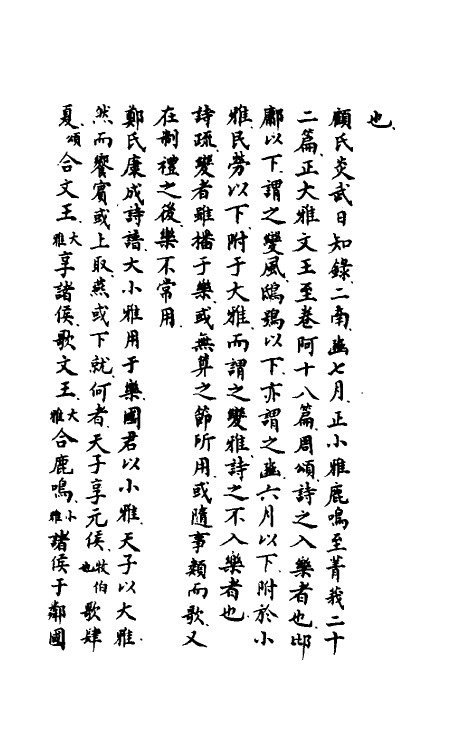 也
顧氏炎武日知錄二南豳七月正小雅鹿鳴至菁莪二十
二篇正大雅文王至卷阿十八篇周頌詩之入樂者也邶
鄘以下謂之變風鴟鴞以下亦謂之豳六月以下附於小
雅民勞以下附于大雅而謂之變雅詩之不入樂者也
詩疏變者雖播于樂或無算之節所用或隨事類而歌又
在制禮之後樂不常用
鄭氏康成詩譜大小雅用于樂國君以小雅天子以大雅
然而饗賓或上取燕或下就何者天子享元侯牧伯也歌肆
夏頌合文王大雅享諸侯歌文王大雅合鹿鳴小雅諸侯于鄰國